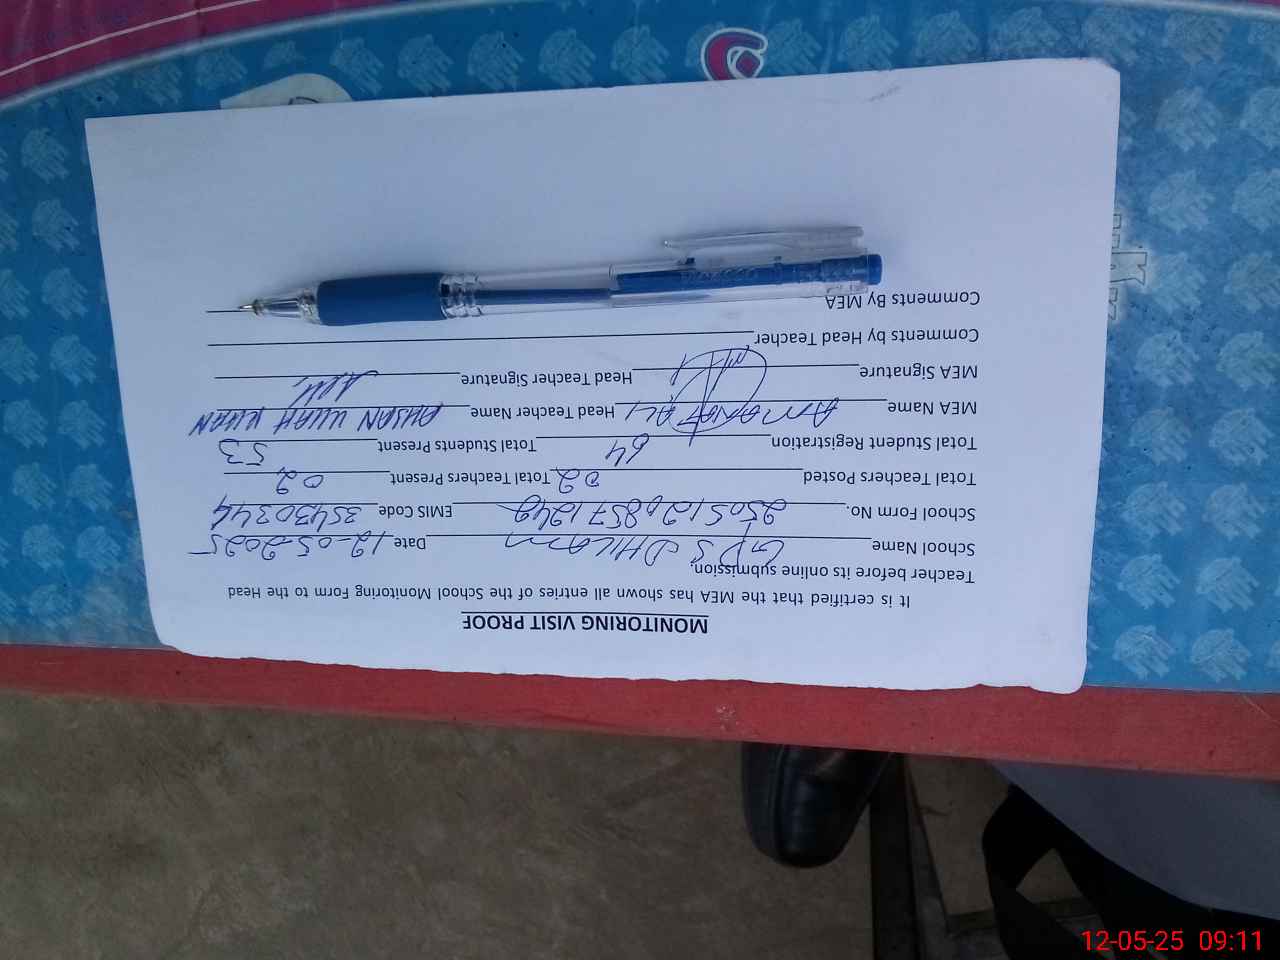 MONITORING VISIT PROOF
It is certified that the MEA has shown all entries of the School Monitoring Form to the Head
Teacher before its online submission.
School Name GPS DHILAM Date 12-05-2025
School Form No. EMIS Code 35430344
Total Teachers Posted 02 Total Teachers Present 02
Total Student Registration 64 Total Students Present 53
MEA Name AMANAT ALI Head Teacher Name AHSAN ULLAH KHAN
MEA Signature Head Teacher Signature
Comments by Head Teacher
Comments By MEA
12-05-25 09:11